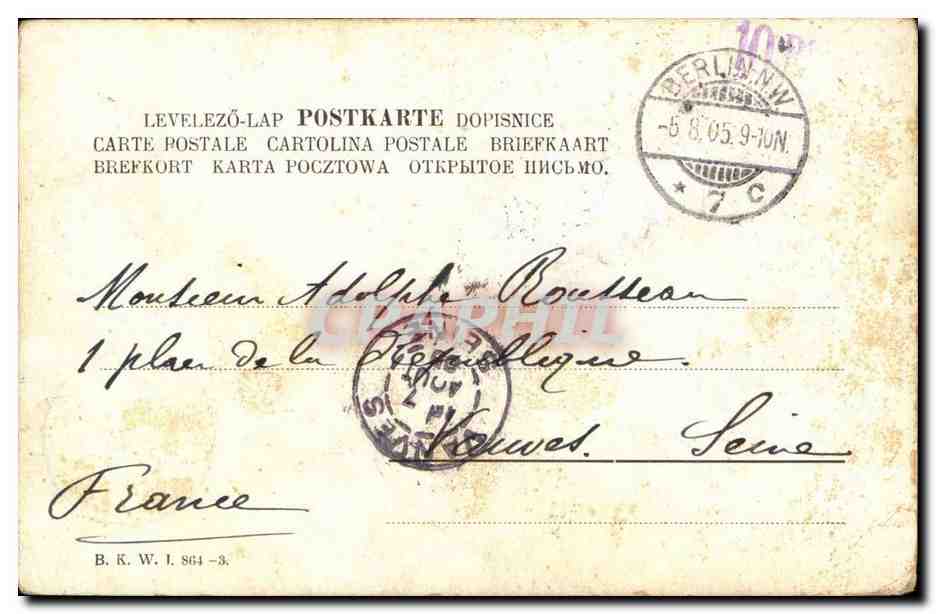 10
BERLIN.N.W
-5.8.05.9-10N.
* 7 C
LEVELEZŐ-LAP POSTKARTE DOPISNICE
CARTE POSTALE CARTOLINA POSTALE BRIEFKAART
BREFKORT KARTA POCZTOWA ОТКРЫТОЕ ПИСЬМО.
Monsieur Adolphe Rousseau
CPAPHIL
1 place de la République.
VANVES
SEINE
7
AOUT
Vanves. Seine
France
B. K. W. I. 864-3.